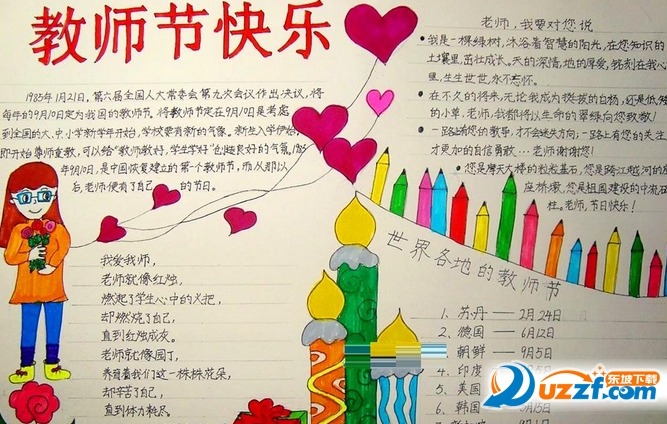 教师节快乐
1985年1月21日,第六届全国人大常委会第九次会议作出决议,将
每年的9月10日定为我国的教师节。将教师节定在9月10日是考虑
到全国的大、中、小学新学年开始,学校要有新的气象。新生入学伊始,
即开始尊师重教,可以给"教师教好,学生学好"创造良好的气氛。
年9月10日,是中国恢复建立的第一个教师节,而从那以
后,老师便有了自己的节日。
老师,我要对您说
我是一棵绿树,沐浴着智慧的阳光,在您知识的
土壤里,茁壮成长。天的深情,地的厚爱,铭刻在我心
里,生生世世,永不忘怀。
在不久的将来,无论我成为挺拔的白杨,还是低矮
的小草,老师,我都将以生命的翠绿向您致敬!
一路上有您的教导,才不会迷失方向;一路上有您的关注
才更加的自信勇敢……老师谢谢您!
您是摩天大楼的粒粒基石,您是跨江越河的
座桥墩,您是祖国建设的中流砥
柱。老师,节日快乐!
我爱我师,
老师就像红烛,
燃起了学生心中的火把,
却燃烧了自己,
直到红烛成灰。
老师就像园丁,
养育着我们这一株株花朵,
却辛苦了自己,
直到体力耗尽。
世界各地的教师节
1、苏丹——2月24日
2、德国——6月12日
朝鲜——9月5日
4、印度——9月5日
5、美国
6、韩国——5月15日
东坡下载
uzzf.com